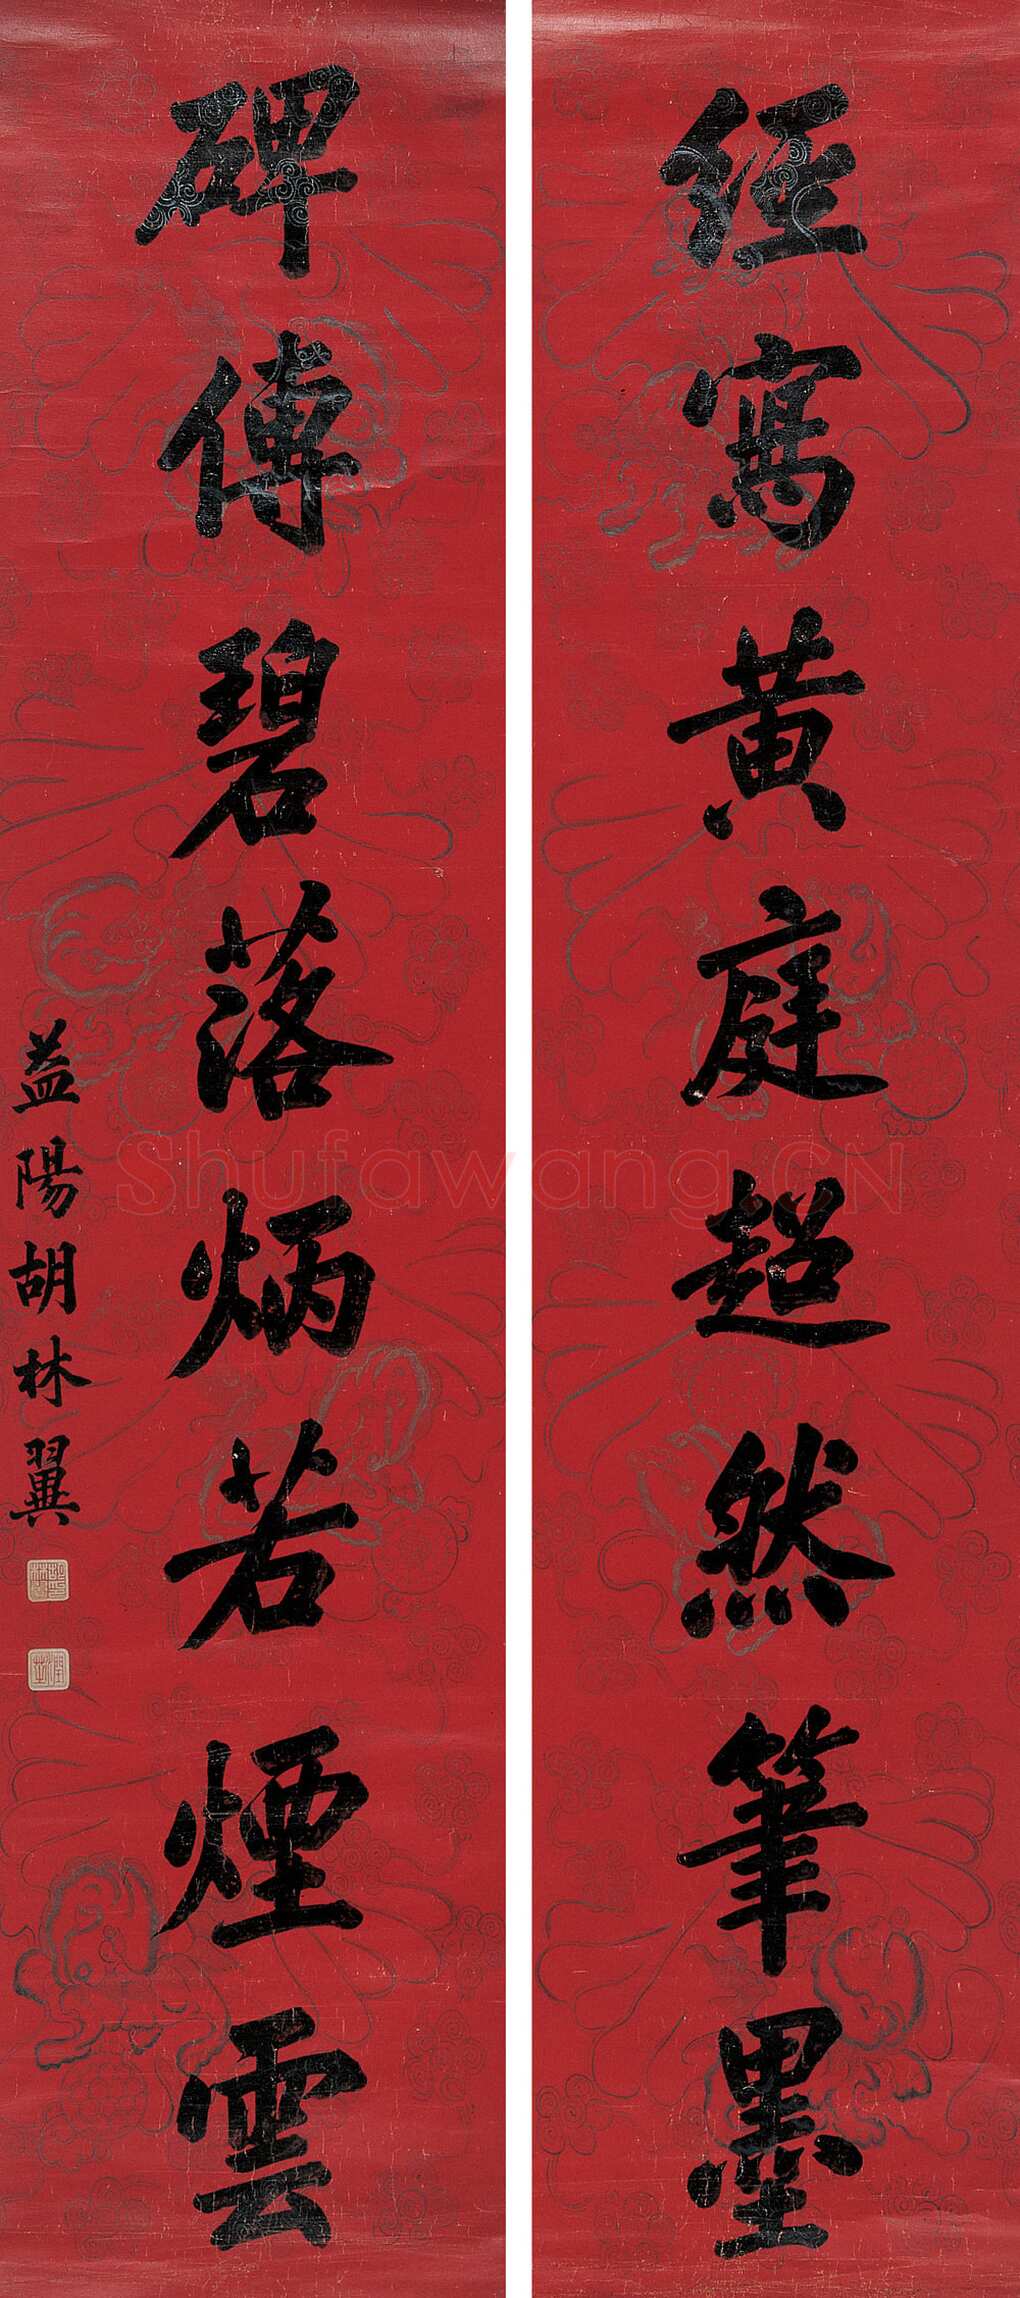 經寫黃庭超然筆墨
碑傳碧落炳若煙雲
益陽胡林翼
胡林翼印
潤芝
Shufawang.CN